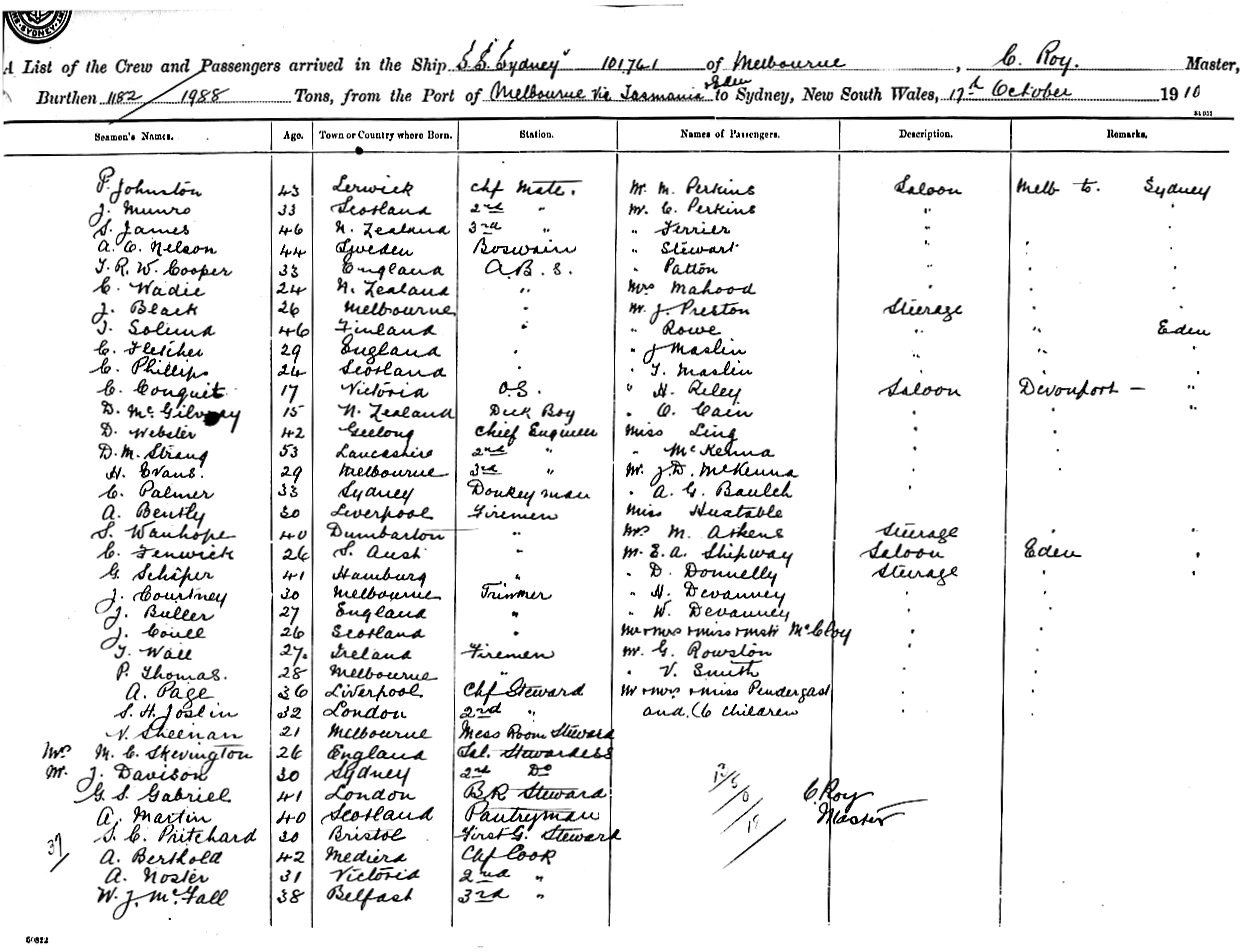 SYDNEY
A List of the Crew and Passengers arrived in the Ship S.S. Sydney" 101761 of Melbourne, C. Roy. Master,
Burthen 1182 1988 Tons, from the Port of Melbourne via Tasmania Eden to Sydney, New South Wales, 17th October 1910
Seamen's Names. Age. Town or Country where Born. Station. Names of Passengers. Description. Remarks.
P. Johnston 43 Lerwick Chf Mate. Mr. M. Perkins Saloon Melb to. Sydney
J. Munro 33 Scotland 2nd " Mr. C. Perkins " " "
S. James 46 N. Zealand 3rd " " Ferrier " "
A. C. Nelson 44 Sweden Boswain " Stewart " " "
T. R. W. Cooper 33 England A.B.S. " Patton " " "
C. Wadie 24 N. Zealand " Mrs Mahood " " "
J. Black 26 Melbourne " Mr. J. Preston Steerage " "
T. Solund 46 Finland " " Rowe " " Eden
C. Fletcher 29 England " " J Maslin " " "
C. Phillips 24 Scotland " " T. Maslin " " "
C. Conquit 17 Victoria O.S. " H. Riley Saloon Devonport — "
D. McGilvray 15 N. Zealand Deck Boy " O. Cain " " "
D. Webster 42 Geelong Chief Engineer Miss Ling " "
D. M. Strang 53 Lancashire 2nd " " McKenna " "
H. Evans. 29 Melbourne 3rd " Mr. J. D. McKenna " "
C. Palmer 33 Sydney Donkeyman " A. G. Baulch " "
A. Bently 30 Liverpool Firemen Miss Huxtable "
S. Wanhope 40 Dumbarton " Mrs M. Askens Steerage " "
C. Fenwick 26 S. Aust " Mr. E. A. Shipway Saloon Eden "
G. Schäper 41 Hamburg " " D. Donnelly Steerage " "
J. Courtney 30 Melbourne Trimmer " H. Devanney " "
J. Buller 27 England " " W. Devanney " "
J. Coull 26 Scotland " Mr & Mrs & Miss & Mstr McCloy " "
T. Wall 27. Ireland Firemen Mr. G. Rowston " "
P. Thomas. 28 Melbourne " " V. Smith " "
A. Page 36 Liverpool Chf Steward Mr & Mrs & Miss Pendergast " "
S. H. Joslin 32 London 2nd " and (6 children " "
V. Sheehan 21 Melbourne Mess Room Steward
Mrs M. C. Skevington 26 England Sal. Stewardess
Mr. J. Davison 30 Sydney 2nd Do
G. S. Gabriel 41 London B.R. Steward C. Roy
A. Martin 40 Scotland Pantryman Master
S. C. Pritchard 30 Bristol First G. Steward
37 A. Berthold 42 Mediera Chf Cook
A. Noster 31 Victoria 2nd "
W. J. McFall 38 Belfast 3rd "